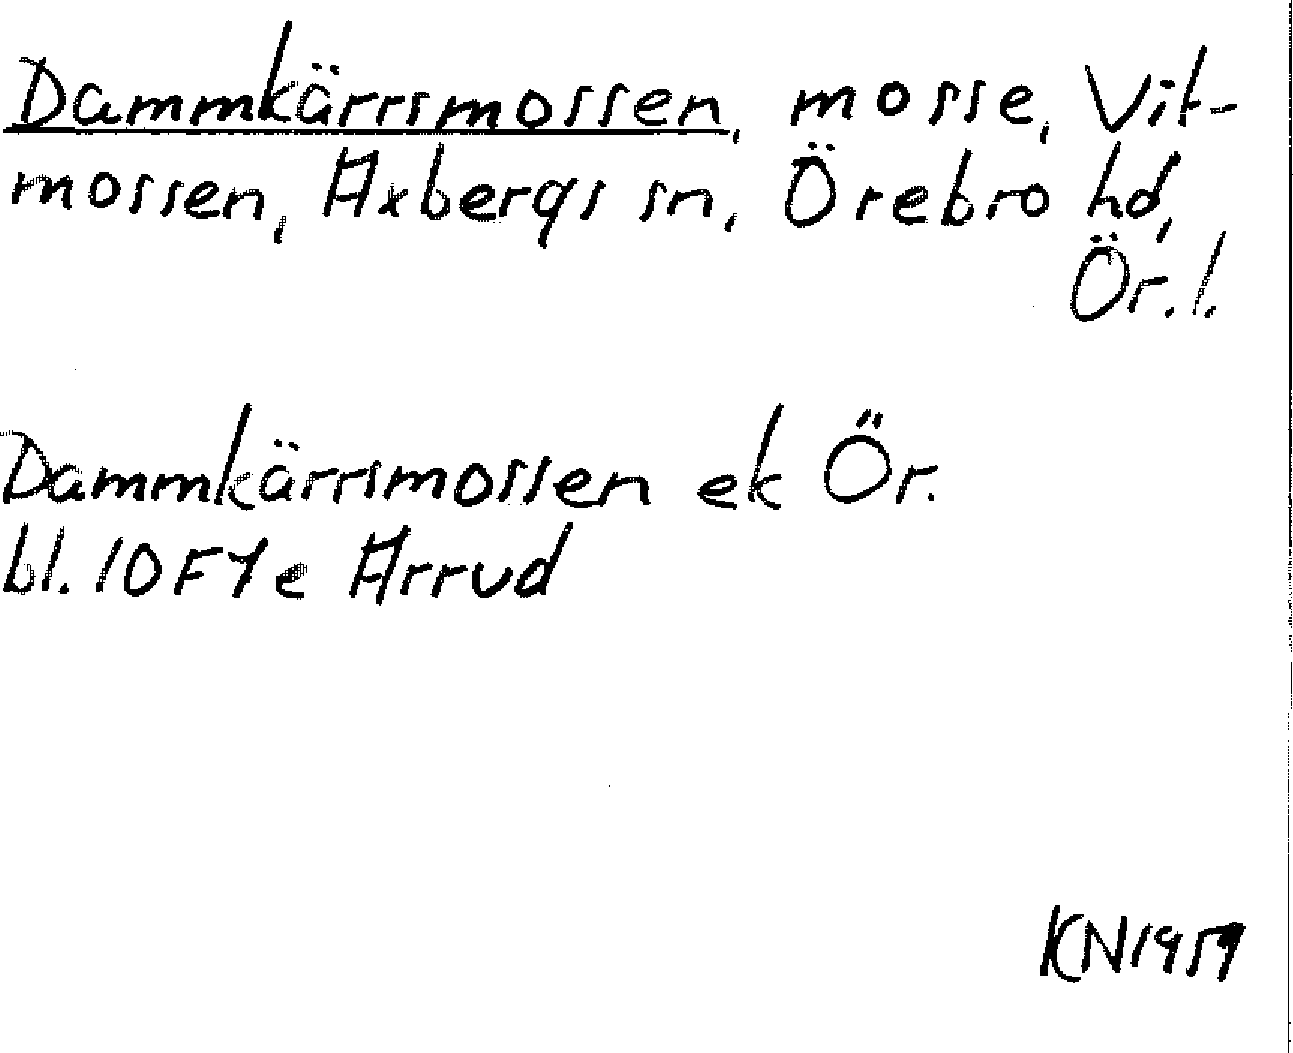 Dammkärrsmossen, mosse, Vit-
mossen, Axbergs sn, Örebro hd,
Ör. l.
Dammkärrsmossen ek Ör.
bl. 10F7e Arrud
KN1959